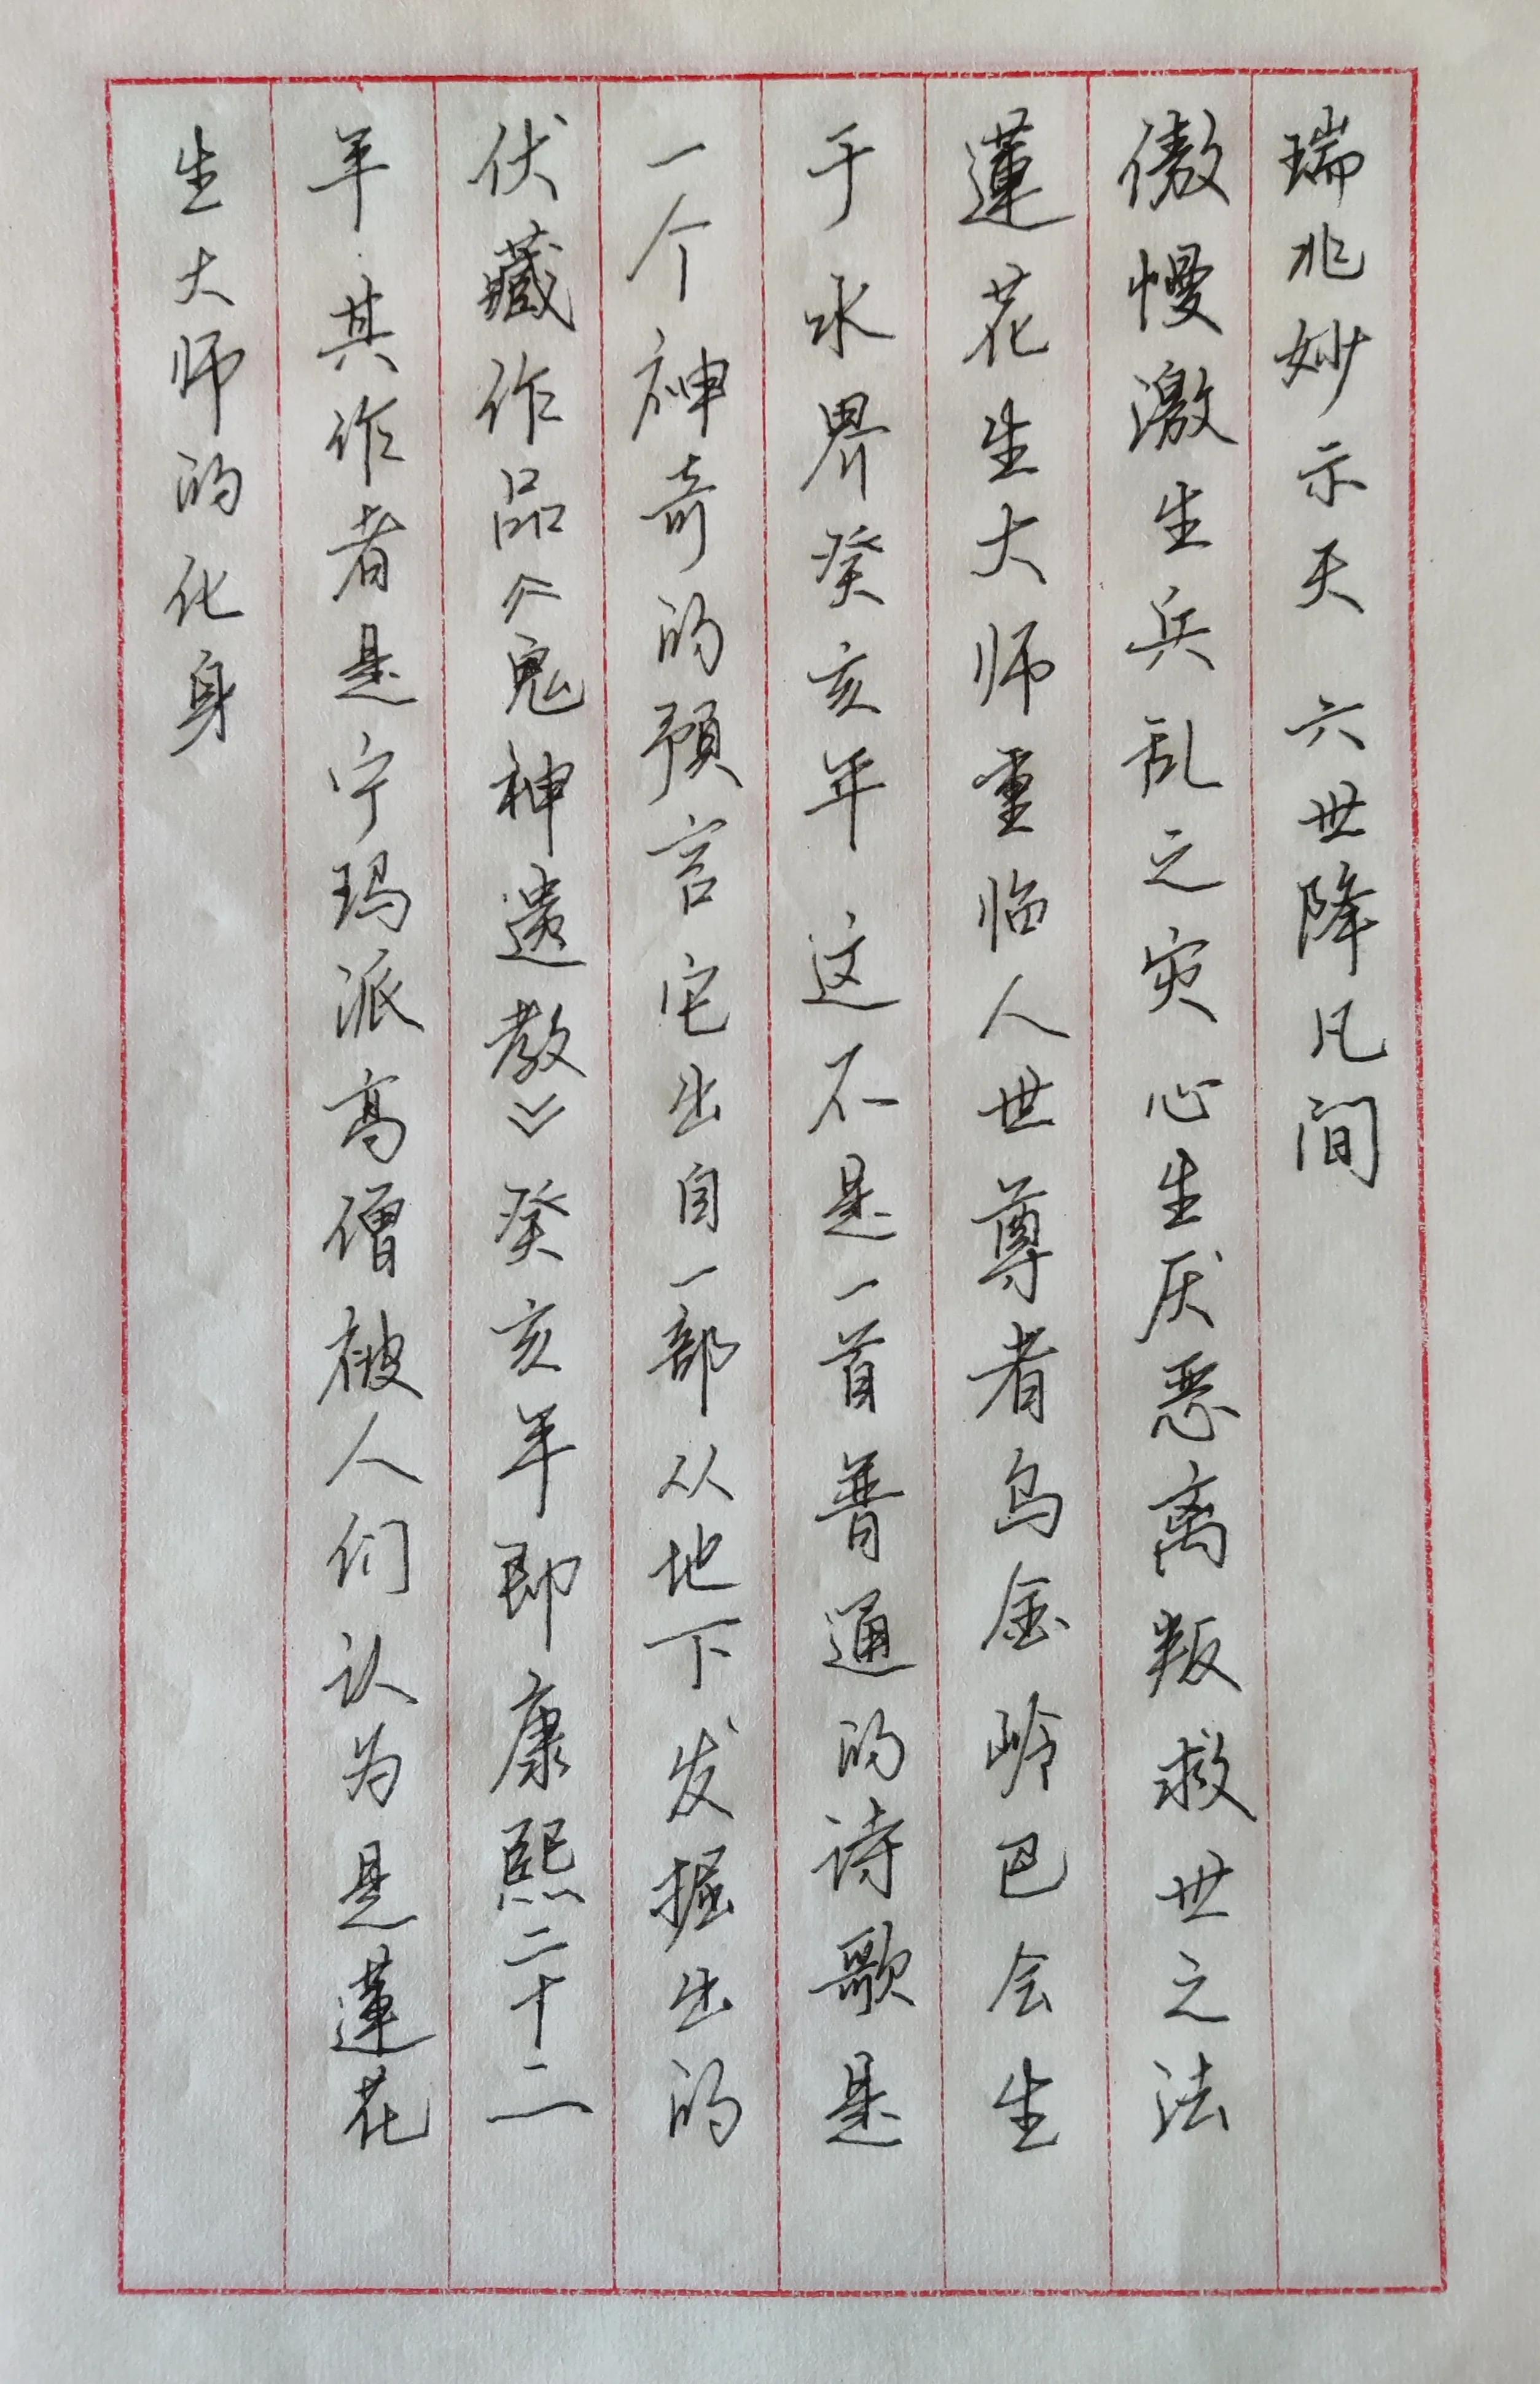 瑞兆妙示天 六世降凡间
傲慢激生兵乱之灾心生厌恶离叛救世之法
蓮花生大师重临人世尊者乌金岭巴会生
于水界癸亥年 这不是一首普通的诗歌是
一个神奇的預言它出自一部从地下发掘出的
伏藏作品《鬼神遗教》癸亥年即康熙二十二
年·其作者是宁玛派高僧被人们认为是蓮花
生大师的化身